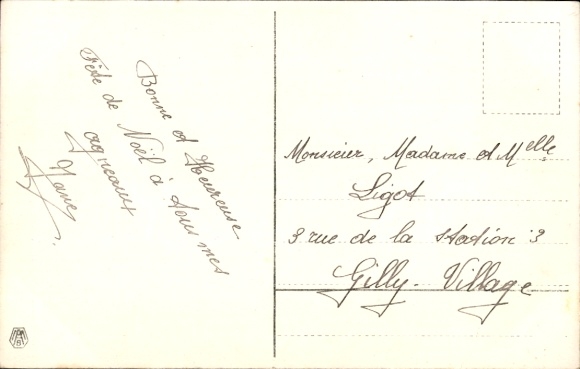 Bonne et Heureuse
Fête de Noël à tous mes
agneaux
Monsieur, Madame et Melle
Ligot
3 rue de la Station 3
Gilly-Village